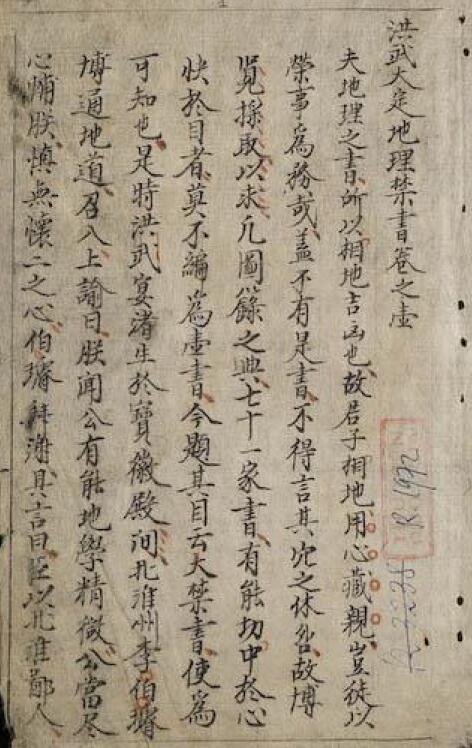 洪武大定地理禁書卷之壹
夫地理之書所以相地吉凶也故君子相地用心藏親豈徒以
榮事為務哉盖不有是書不得言其穴之休咎故博
覽採取以求凡圖籙之典七十一家書有能切中於心
快於目者莫不編為壹書今題其目云大禁書使為
可知也是時洪武宴渚生於寶徽殿间北淮州李伯璿
博通地道召入上諭曰朕闻公有能地學精微公當尽
心輔朕慎無懷二之心伯璿拜谢具言曰臣以北淮鄙人
R.1992